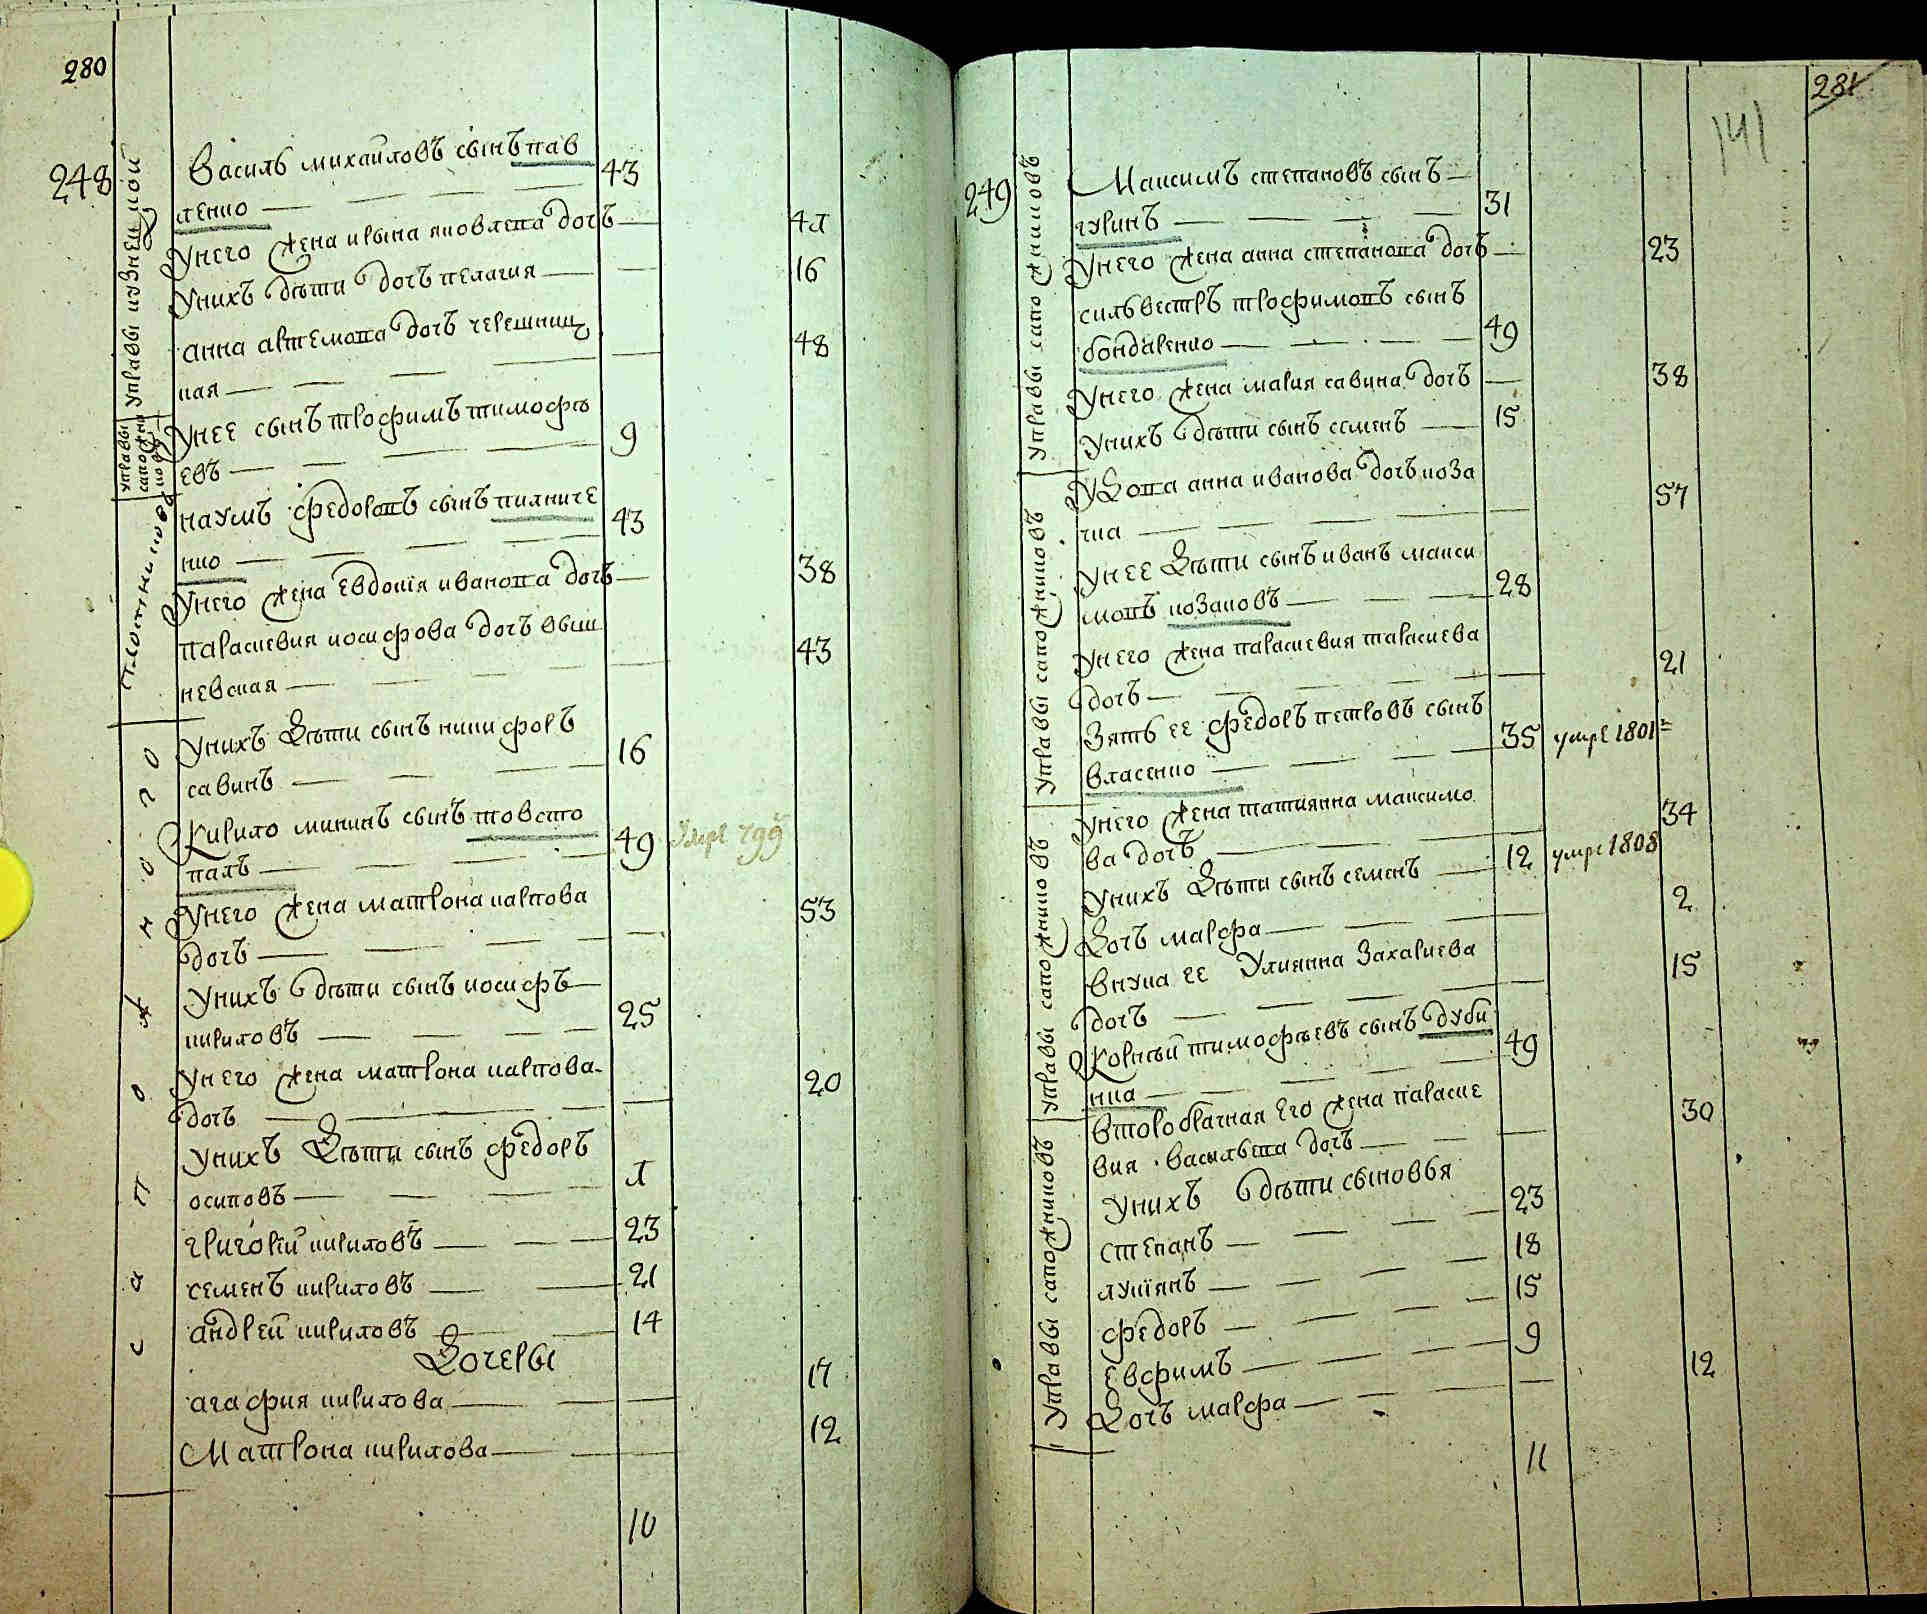 280
248
управы кузнецкой
Василь михайловъ сынъ пав
ленко 43
Унего жена ирына яковлева дочь
Унихъ дѣти дочь пелагия 16
анна артемова дочь черешниц
кая 48
управы
сапожни
ковъ
Унее сынъ трофимъ тимофѣ
евъ 9
плотниковъ
наумъ федоровъ сынъ пилипче
нко 43
Унего жена Евдокія иванова дочь 38
параскевия иосифова дочь виш
невская 43
сапожного
Унихъ дѣти сынъ никифоръ
савинъ 16
Кирило мининъ сынъ товсто
палъ 49 Умре 799
Унего жена матрона карпова
дочь 53
Унихъ дѣти сынъ иосифъ
кириловъ 25
Унего жена матрона карпова
дочь 20
Унихъ дѣти сынъ федоръ
осиповъ
григорей кириловъ 23
семенъ кириловъ 21
андрей кириловъ 14
Дочеры
агафия кирилова 17
Матрона кирилова 12
10
281
141
249
управы сапожниковъ
Максимъ степановъ сынъ
гуринъ 31
Унего жена анна степанова дочь 23
сильвестръ трофимовъ сынъ
бондаренко 49
Унего жена мария савина дочь 38
Унихъ дѣти сынъ семенъ 15
управы сапожниковъ
Удова анна иванова дочь коза
чка 57
Унее дѣти сынъ иванъ макси
мовъ козаковъ 28
Унего жена параскевия тараснева
дочь 21
Зять ее федоръ петровъ сынъ
власенко 35 умре 1801
управы сапожниковъ
Унего жена татиянна максимо
ва дочь 34
Унихъ дѣти сынъ семенъ 12 умре 1808
Дочь марфа 2
внука ее Улиянна Захариева
дочь 15
Корнѣй тимофѣевъ сынъ дуби
нка 49
управы сапожниковъ
второбрачная Его жена параске
вия васильева дочь 30
Унихъ дѣти сыновья
степанъ 23
лукіянъ 18
федоръ 15
Евфимъ 9
Дочь марфа 12
11